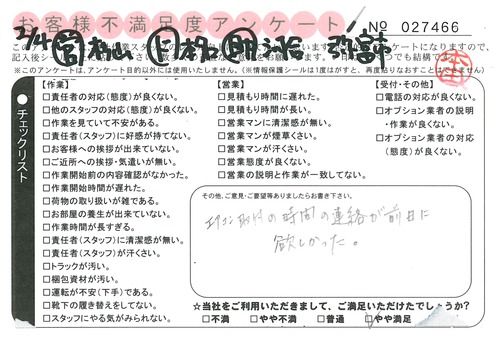 お客様不満足度アンケート
No 027466
2/4
※このアンケートは、アンケート目的以外には使用いたしません。(※情報保護シールは1度はがすと、再度貼りなおすことはできません)
チェックリスト
【作業】
□責任者の対応(態度)が良くない。
□他のスタッフの対応(態度)が良くない。
□作業を見ていて不安がある。
□責任者(スタッフ)に好感が持てない。
□お客様への挨拶が出来ていない。
□ご近所への挨拶・気遣いが無い。
□作業開始前の内容確認がなかった。
□作業開始時間が遅れた。
□荷物の取り扱いが雑である。
□お部屋の養生が出来ていない。
□作業時間が長すぎる。
□責任者(スタッフ)に清潔感が無い。
□責任者(スタッフ)が汗くさい。
□トラックが汚い。
□梱包資材が汚い。
□運転が不安(下手)である。
□靴下の履き替えをしてない。
□スタッフにやる気がみられない。
【営業】
□見積もり時間に遅れた。
□見積もり時間が長い。
□営業マンに清潔感が無い。
□営業マンが煙草くさい。
□営業マンが汗くさい。
□営業態度が良くない。
□営業の説明と作業が一致してない。
【受付・その他】
□電話の対応が良くない。
□オプション業者の説明
・作業が良くない。
□オプション業者の対応
(態度)が良くない。
その他、ご意見・ご要望等ありましたらお書き下さい。
エアコン取付の時間の連絡が前日に
欲しかった。
☆当社をご利用いただきまして、ご満足いただけたでしょうか?
□不満 □やや不満 □普通 □やや満足